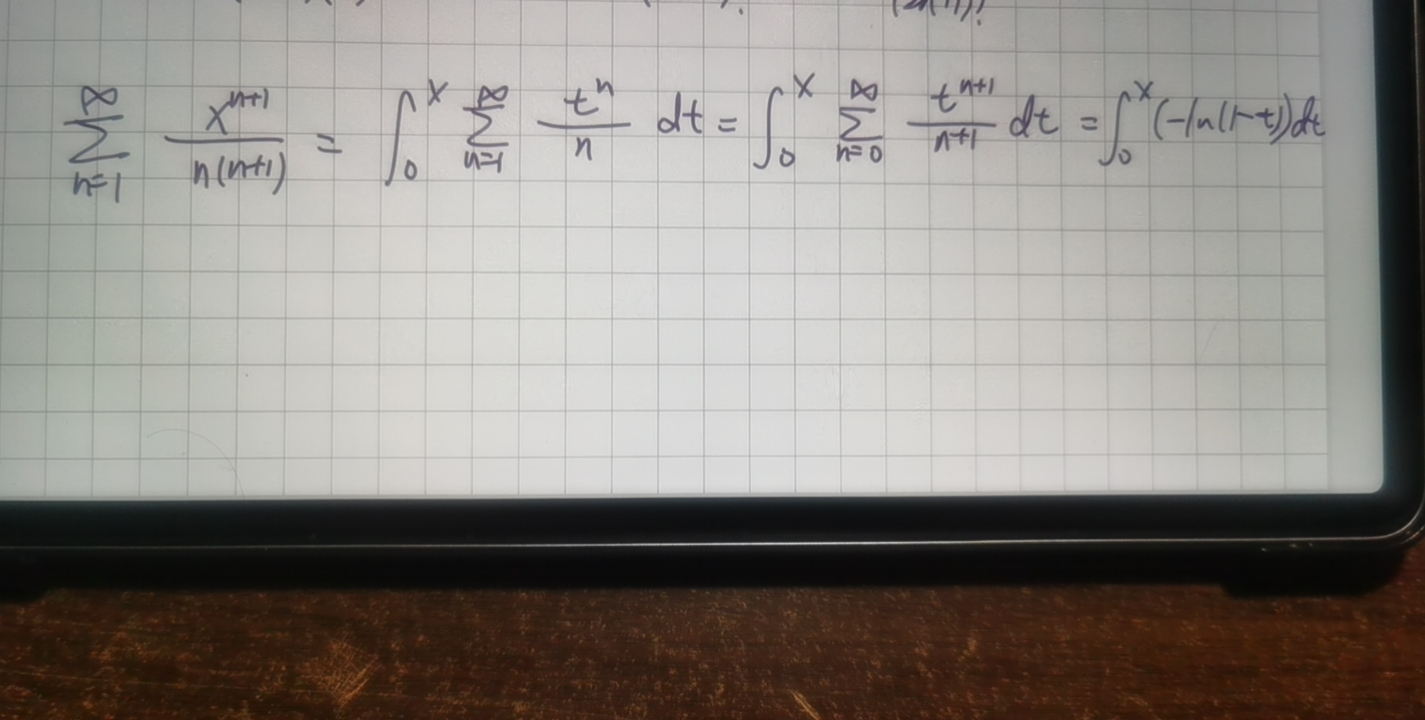 (2n+1)!
∞∑n=1 x^(n+1)/(n(n+1)) = ∫₀ˣ ∞∑n=1 tⁿ/n dt = ∫₀ˣ ∞∑n=0 t^(n+1)/(n+1) dt = ∫₀ˣ (-ln(1-t))dt